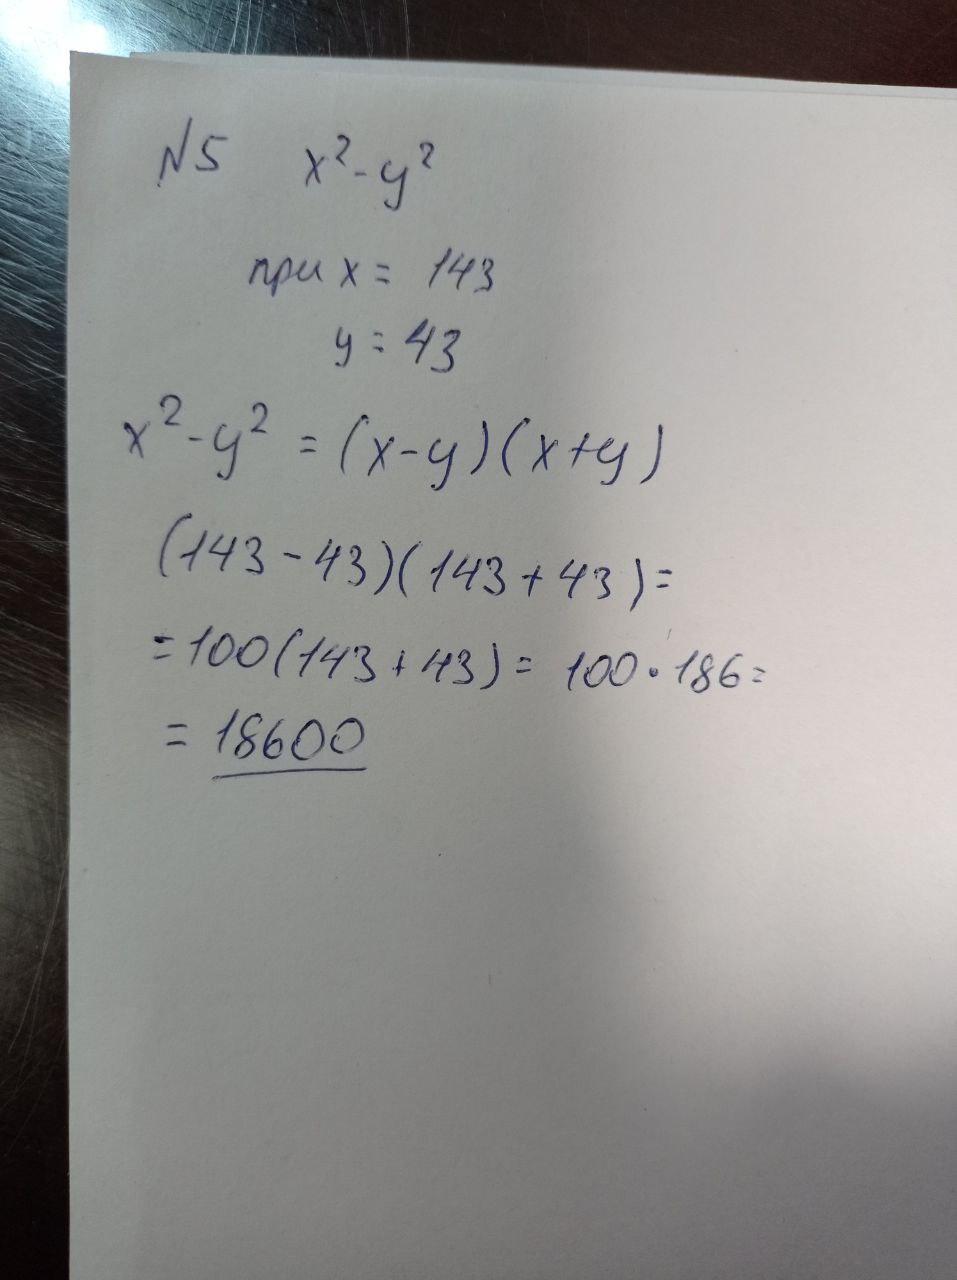 N5 x²-y²
при x = 143
y = 43
x²-y² = (x-y)(x+y)
(143-43)(143+43)=
=100(143+43)= 100·186=
= 18600